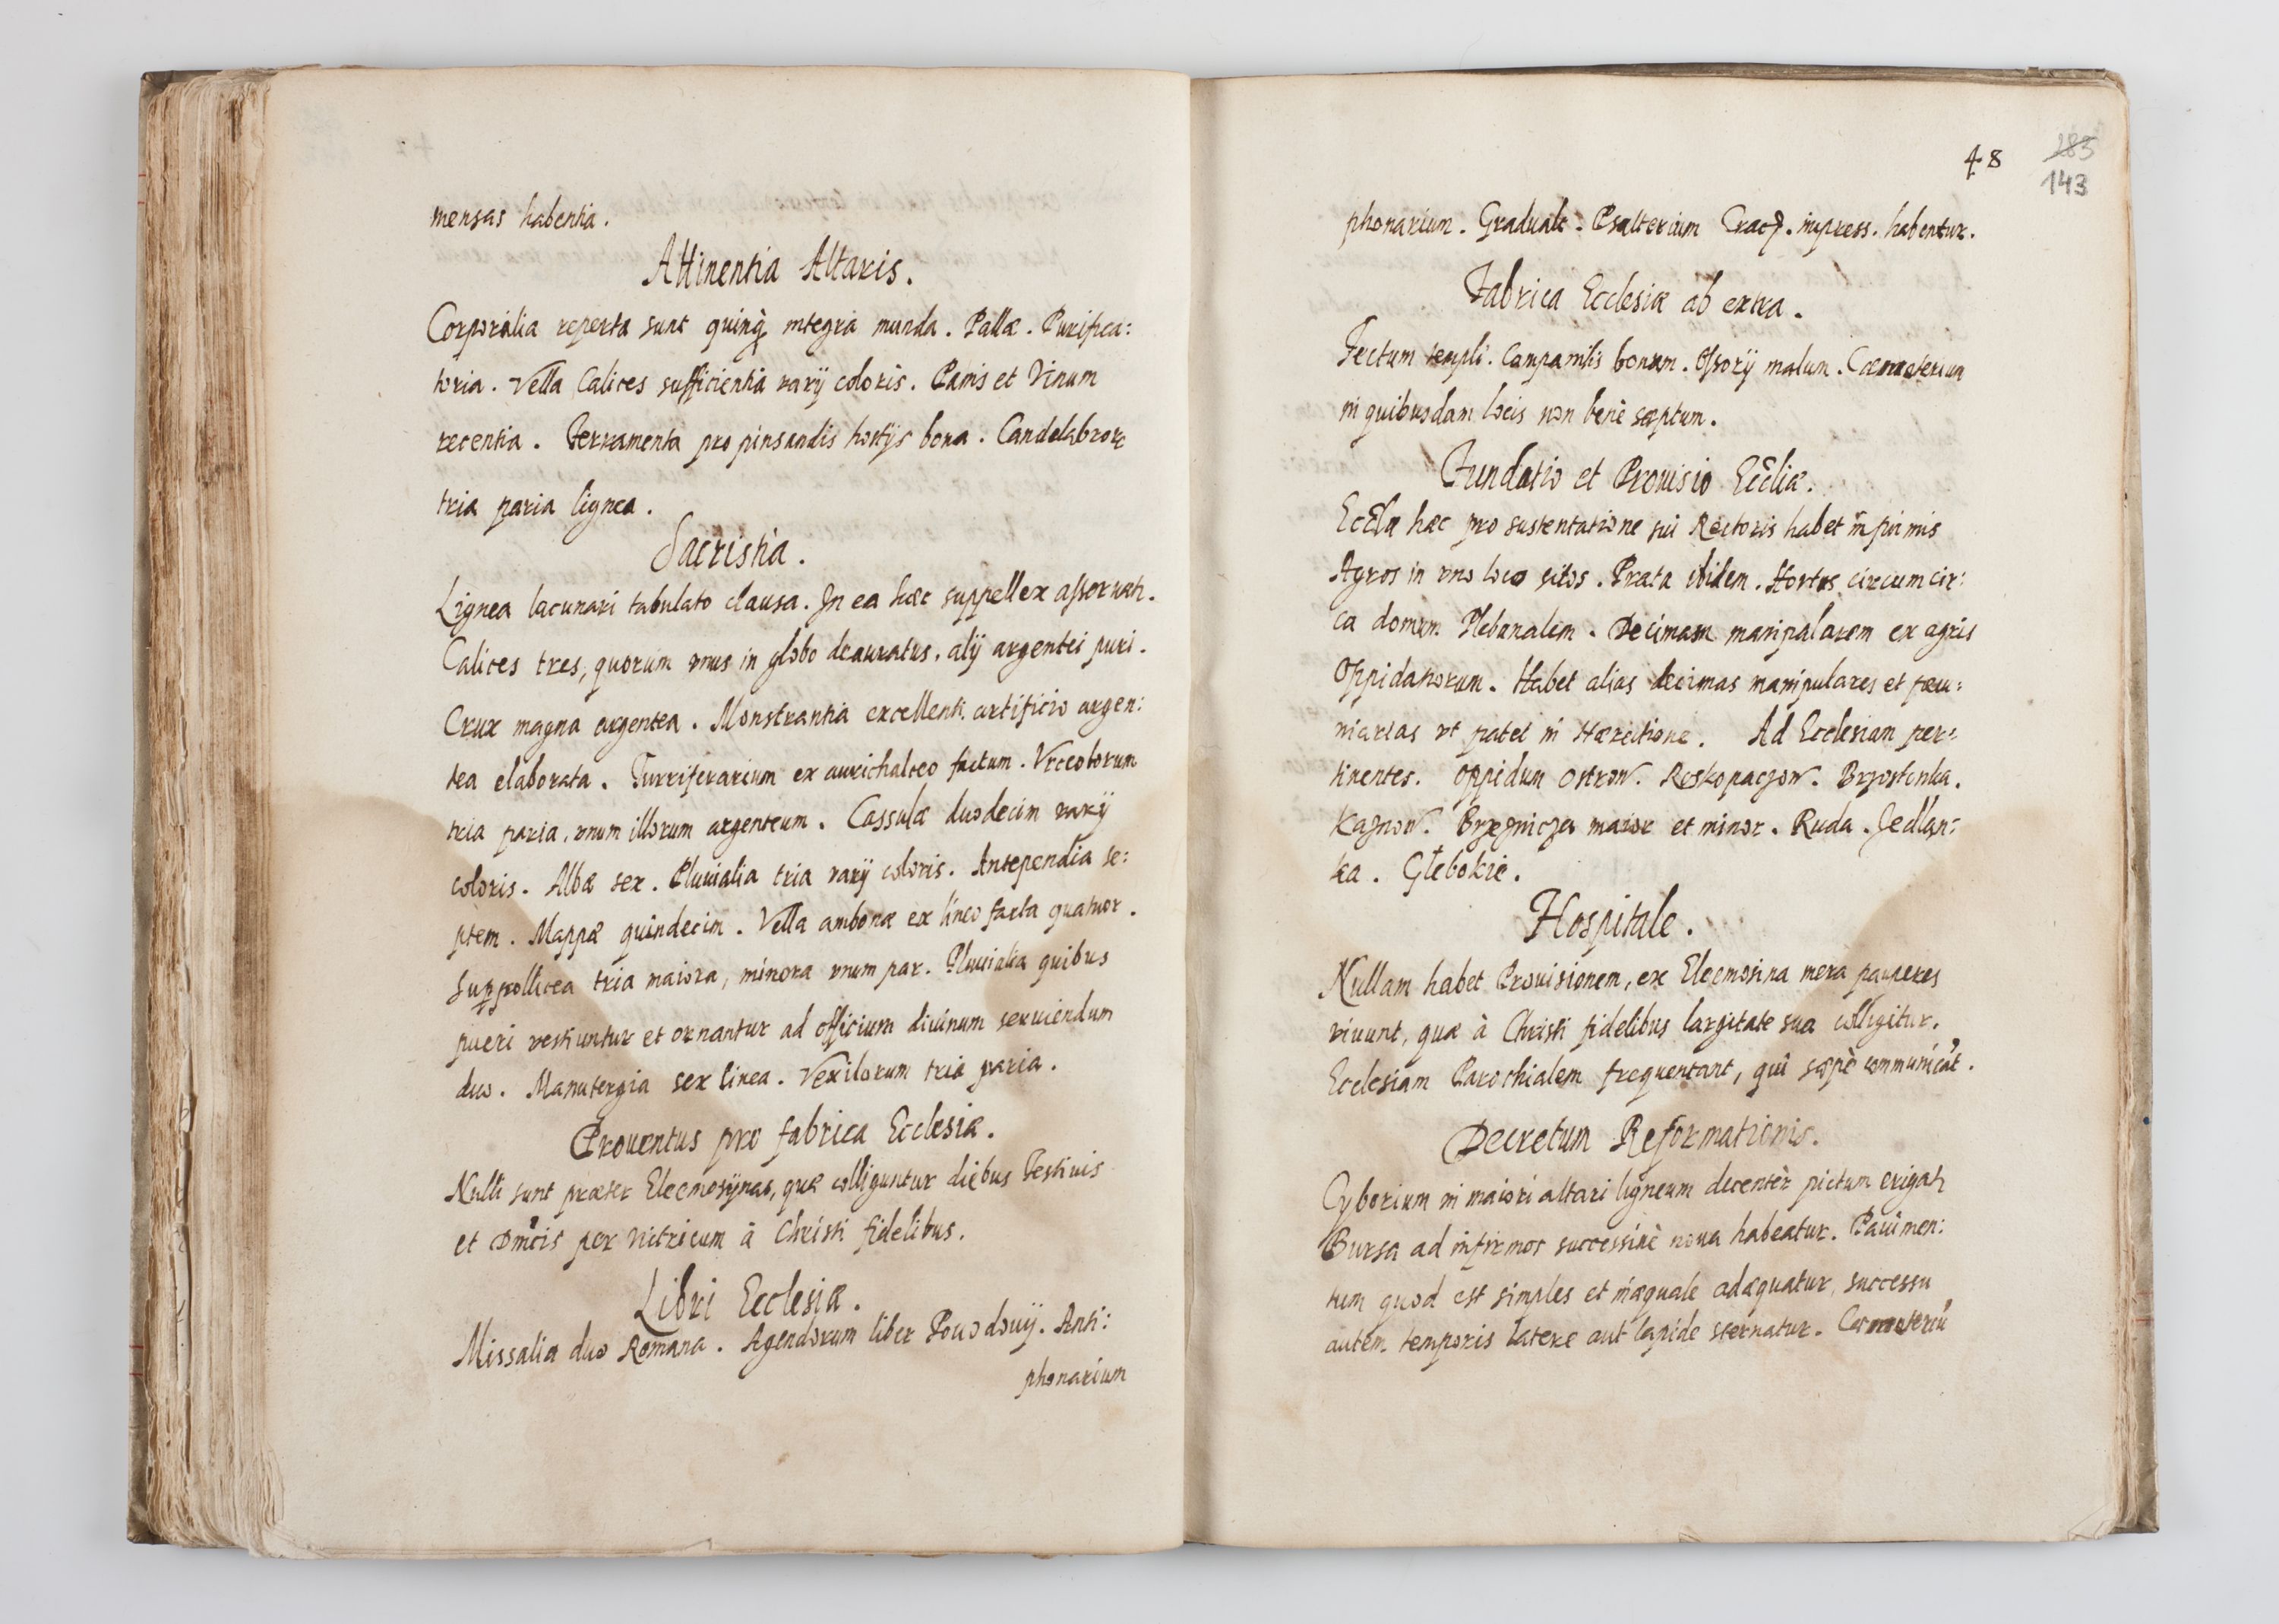 mensas habentia.
Attinentia Altaris.
Corporalia reperta sunt quinq; integra munda. Pallæ. Purifica:
toria. Vella Calices sufficientia varij coloris. Panis et Vinum
recentia. Ferramenta pro pinsandis hostijs bona. Candelabror
tria paria lignea.
Sacristia.
Lignea lacunari tabulato clausa. In ea hæc suppellex asseruat.
Calices tres, quorum vnus in globo deauratus, alij argentei puri.
Crux magna argentea. Monstrantia excellenti artificio argen:
tea elaborata. Turriferarium ex aurichalceo factum. Vrceolorum
tria paria, vnum illorum argenteum. Cassulæ duodecim varij
coloris. Albæ sex. Pluuialia tria varij coloris. Antependia se:
ptem. Mappæ quindecim. Vella ambonæ ex lineo facta quatuor.
Suppellicea tria maiora, minora vnum par. Pluuialia quibus
pueri vestiuntur et ornantur ad officium diuinum seruiendum
duo. Manutergia sex linea. Vexilorum tria paria.
Prouentus pro fabrica Ecclesiæ.
Nulli sunt præter Eleemosynas, quæ colliguntur diebus Festiuis
et Dmcis per Vitricum à Christi fidelibus.
Libri Ecclesiæ.
Missalia duo Romana. Agendorum liber Powodouij. Anti:
phonarium
48
285
143
phonarium. Graduale. Psalterium Crac. impress. habentur.
Fabrica Ecclesiæ ab extra.
Tectum templi. Campanilis bonum. Ossorij malum. Cæmeterium
in quibusdam locis non benè sæptum.
Fundatio et Prouisio Eccliæ.
Eccla hæc pro sustentatione sui Rectoris habet in primis
Agros in vno loco sitos. Prata ibidem. Hortos circumcir:
ca domum Plebanalem. Decimam manipularem ex agris
Oppidanorum. Habet alias decimas manipulares et pecu:
niarias vt patet in Hærectione. Ad Ecclesiam per:
tinentes. Oppidum Ostrow. Roskopaczow. Brzostonka.
Kaznow. Brzeznicza maior et minor. Ruda. Jedlan:
ka. Glebokie.
Hospitale.
Nullam habet Prouisionem, ex Eleemosina mera pauperes
viuunt, quæ à Christi fidelibus largitate sua colligitur.
Ecclesiam Parochialem frequentant, qui sæpè communicāt.
Decretum Reformationis.
Cyborium in maiori altari ligneum decentèr pictum erigat
Bursa ad infirmos successiuè noua habeatur. Pauimen:
tum quod est simples et inæquale adæquatur, successu
autem temporis latere aut lapide sternatur. Cæmeteriū